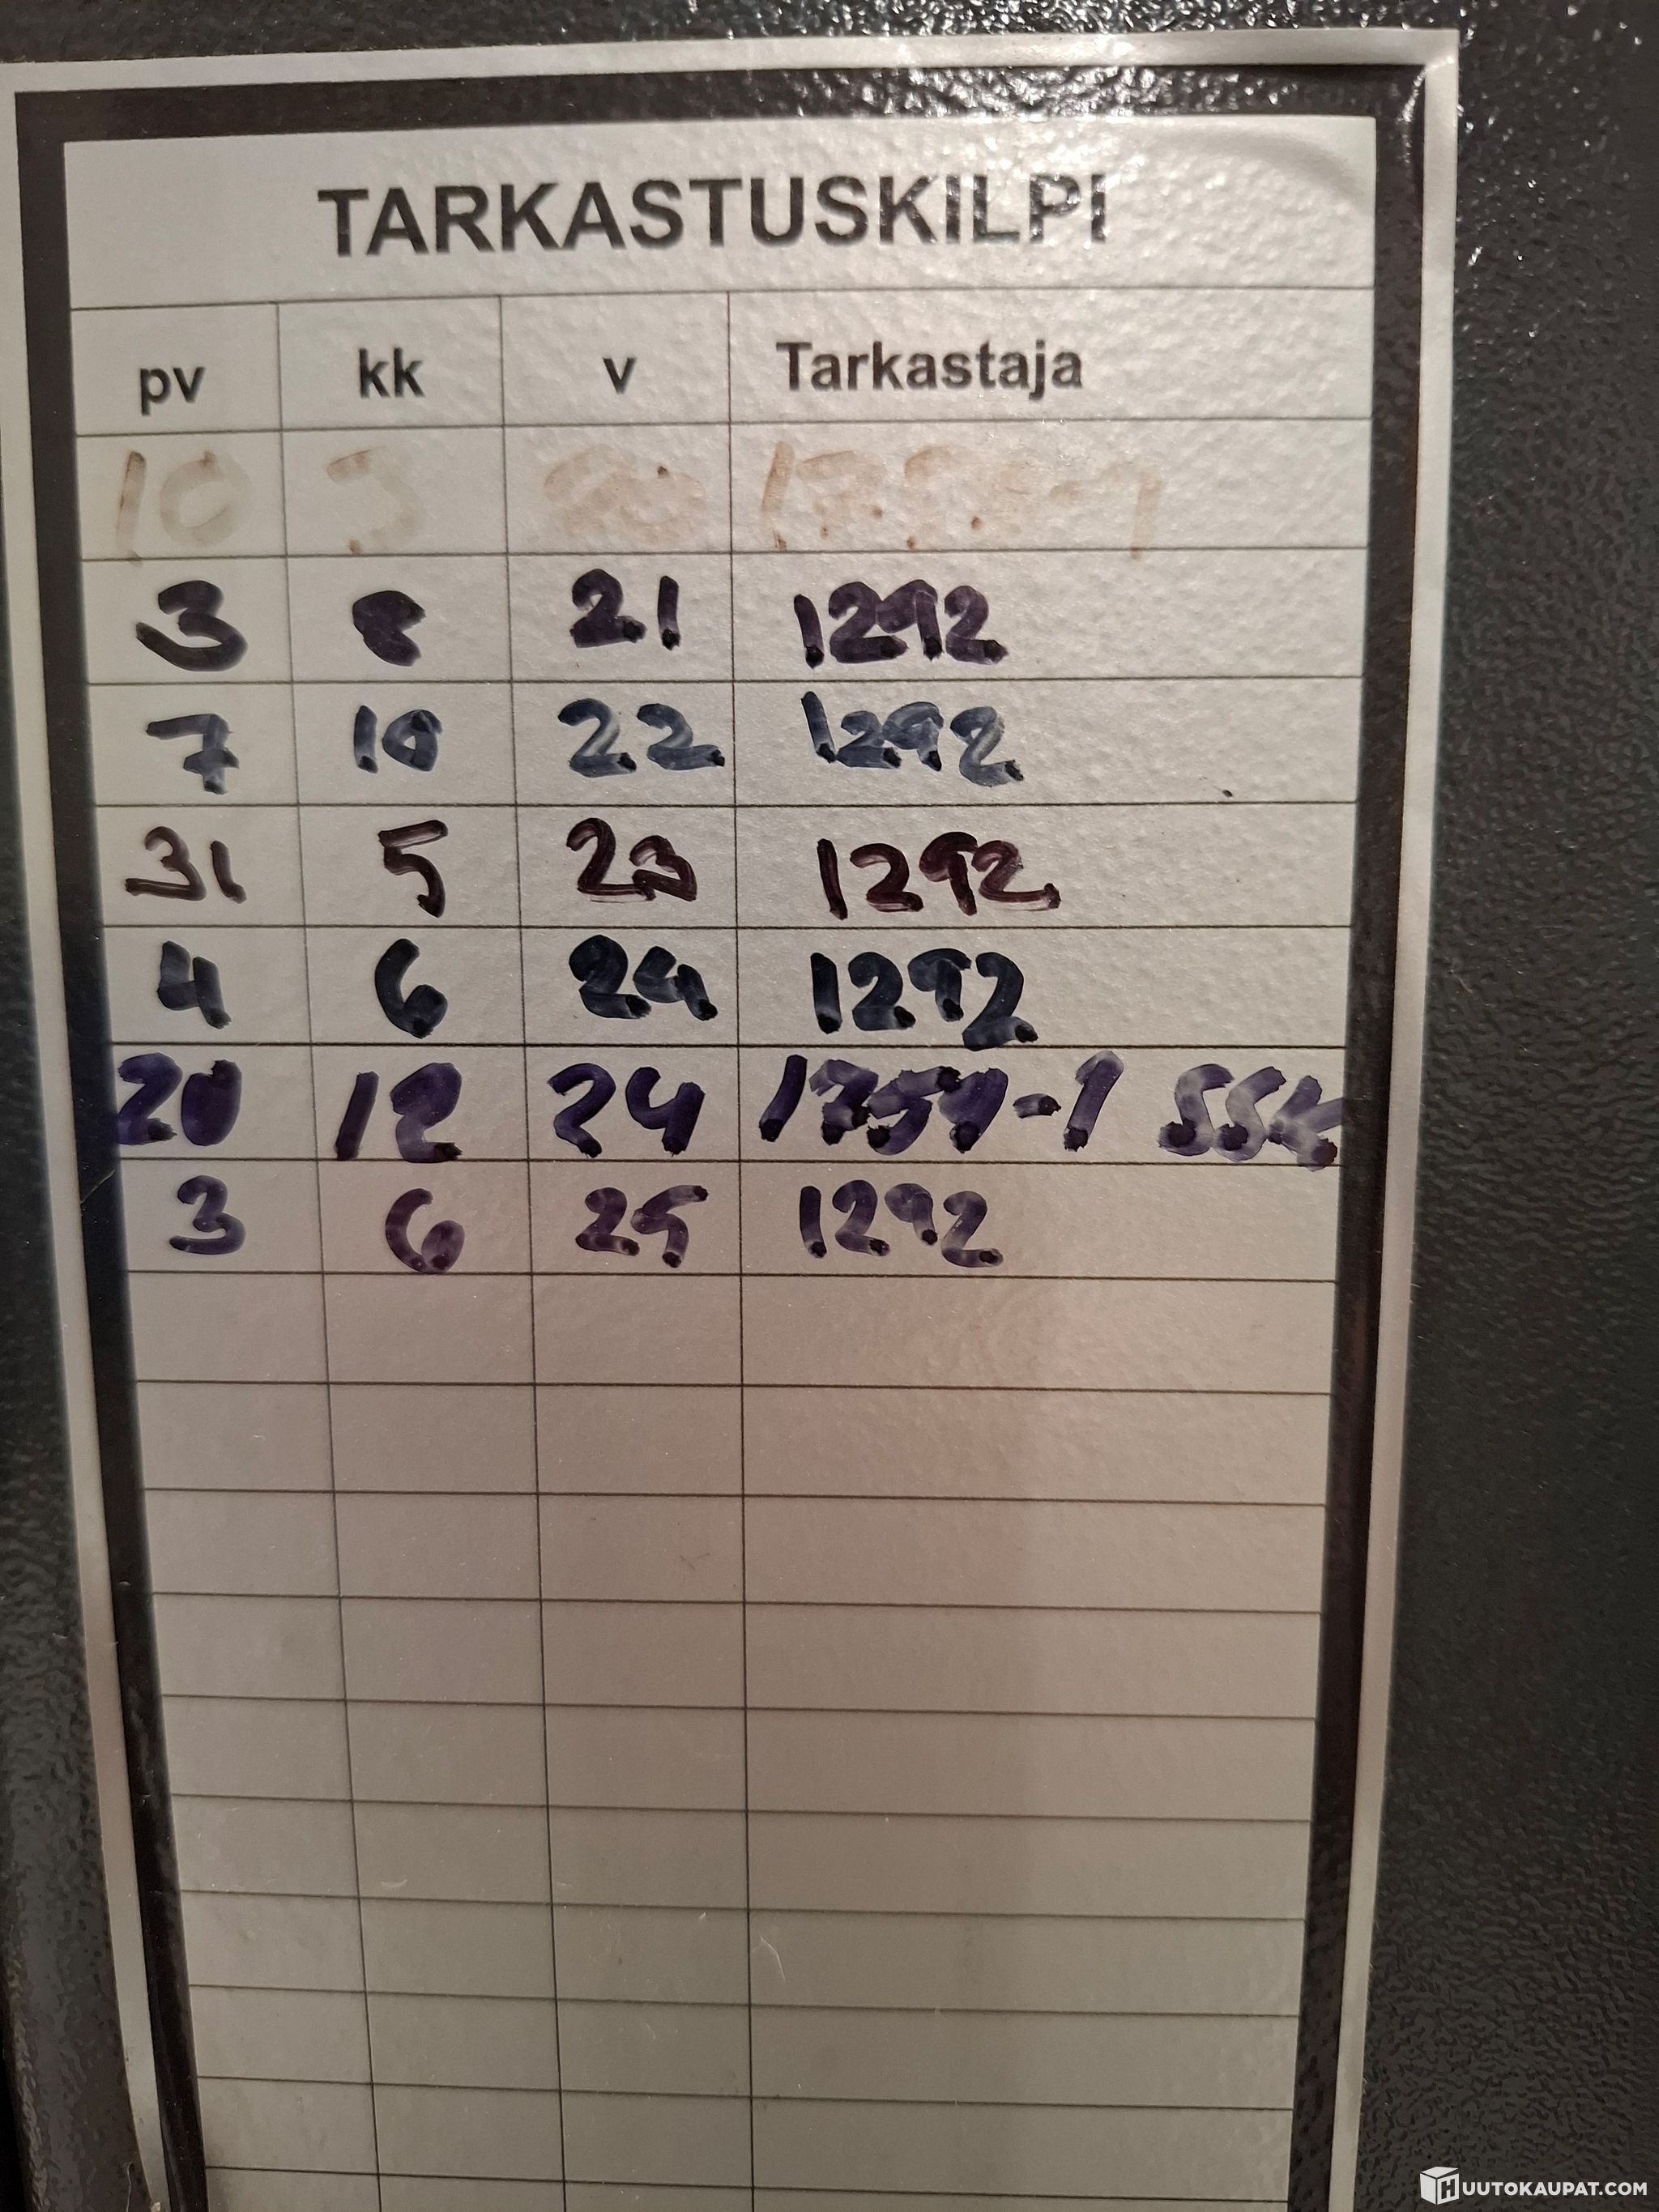 TARKASTUSKILPI
pv kk v Tarkastaja
10
3 8 21 1292
7 10 22 1292
31 5 23 1292
4 6 24 1292
20 12 24 1754-1 SSK
3 6 25 1292
HUUTOKAUPAT.COM